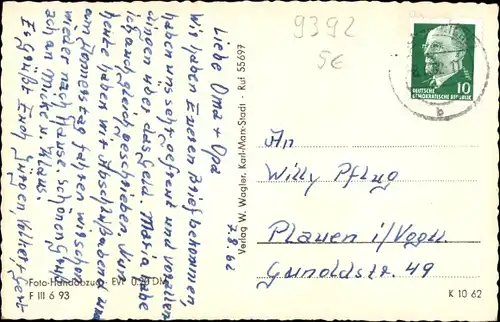 9392
5€
Liebe Oma + Opa
7.8.62
Wir haben Eueren Brief bekommen,
haben uns sehr gefreut und vor allen
dingen über das Geld. Maria habe
ich auch gleich geschrieben. Nun
heute haben wir Abschlußabend u
am Donnerstag fahren wir schon
wieder nach Hause. Schönen Gruß
an Mike u.
Es grüßt Euch Jürgen, Volker,
DEUTSCHE
DEMOKRATISCHE REPUBLIK
10
b
An
Willy Pflug
Plauen i/Vogtl.
49
Verlag W. Wagler, Karl-Marx-Stadt · Ruf 55697
Foto-Handabzug EVP 0.20 DM
F III 6 93
K 10 62